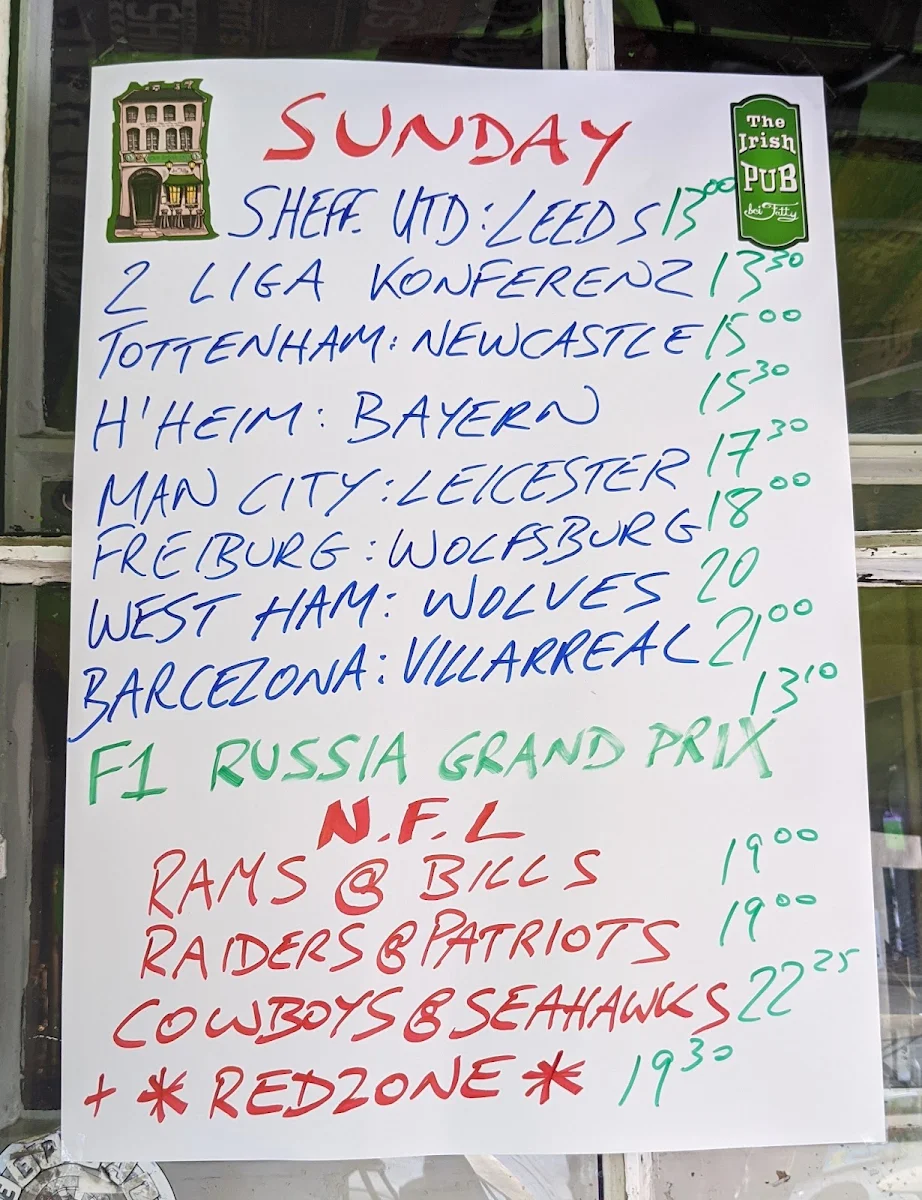 SUNDAY
The
Irish
PUB
bei Fatty
SHEFF. UTD: LEEDS 13 00
2 LIGA KONFERENZ 13 30
TOTTENHAM: NEWCASTLE 15 00
H'HEIM: BAYERN 15 30
MAN CITY: LEICESTER 17 30
FREIBURG: WOLFSBURG 18 00
WEST HAM: WOLVES 20
BARCELONA: VILLARREAL 21 00
13 10
F1 RUSSIA GRAND PRIX
N.F.L
RAMS @ BILLS 19 00
RAIDERS @ PATRIOTS 19 00
COWBOYS @ SEAHAWKS 22 25
+ * REDZONE * 19 30